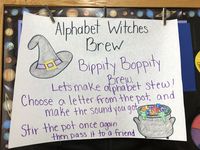 Alphabet Witches
Brew
Bippity Boppity
Brew,
Let's make alphabet stew!
Choose a letter from the pot, and
make the sound you got
Stir the pot once again
then pass it to a friend